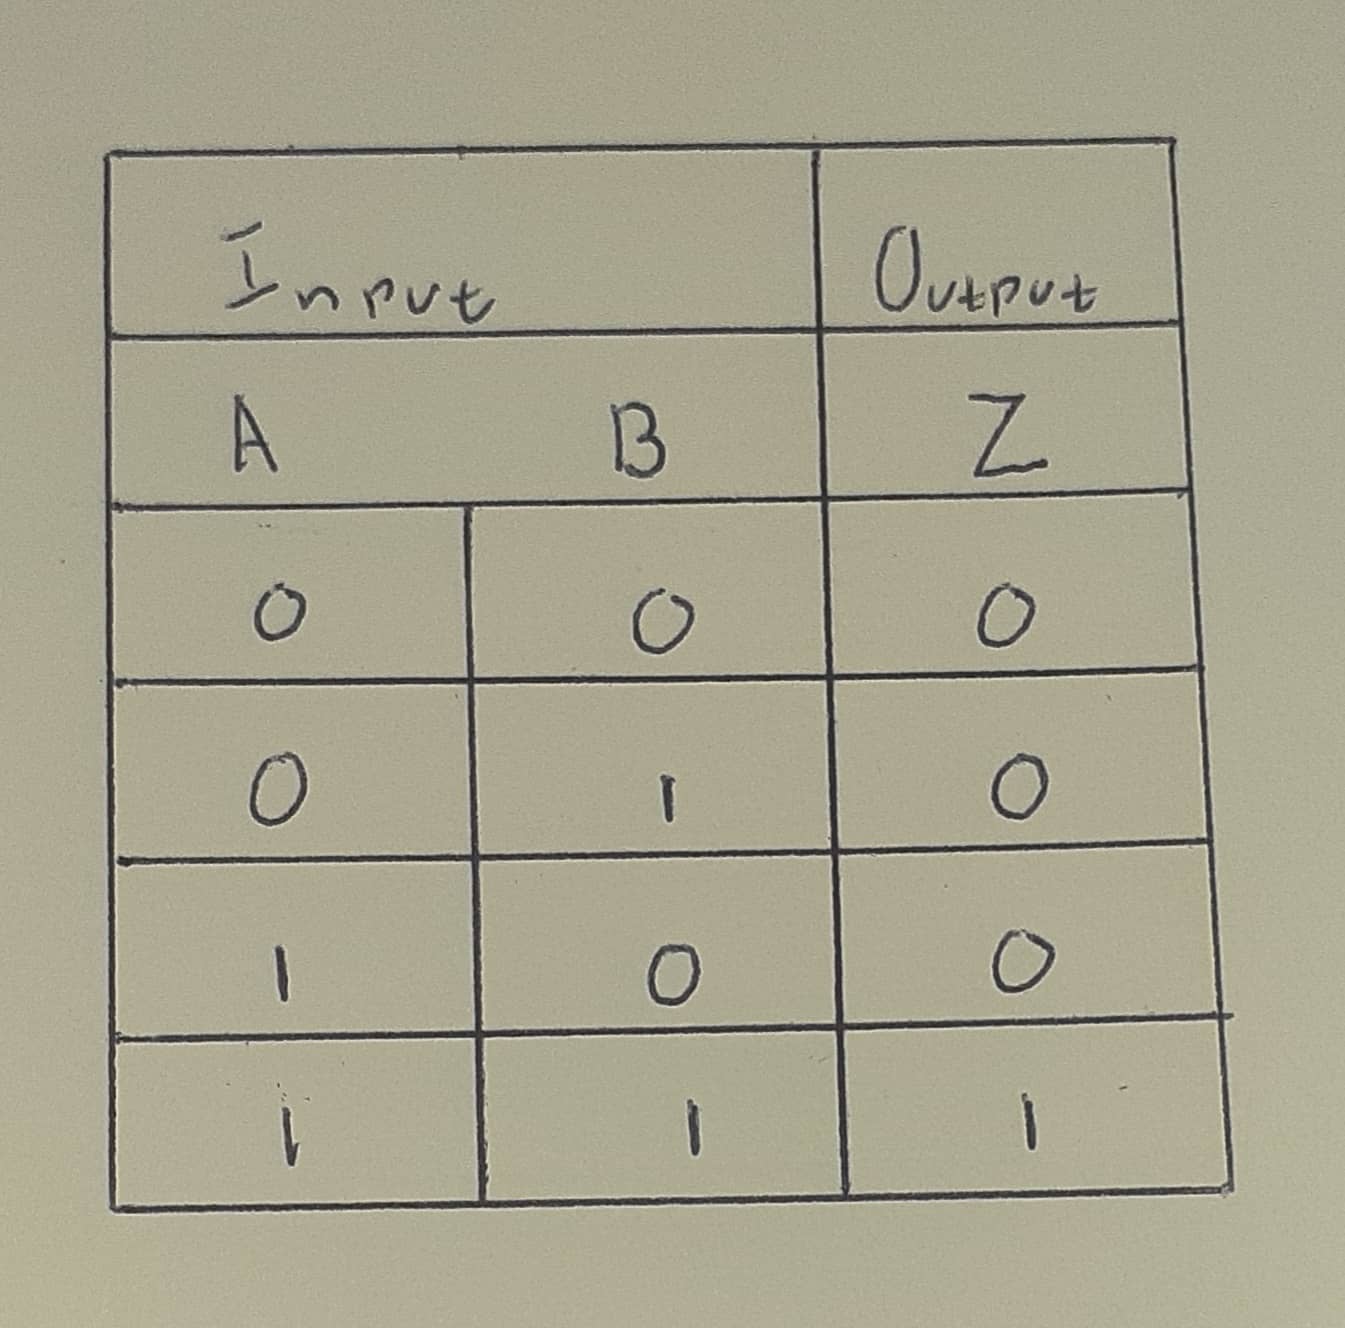 Input Output
A B Z
0 0 0
0 1 0
1 0 0
1 1 1